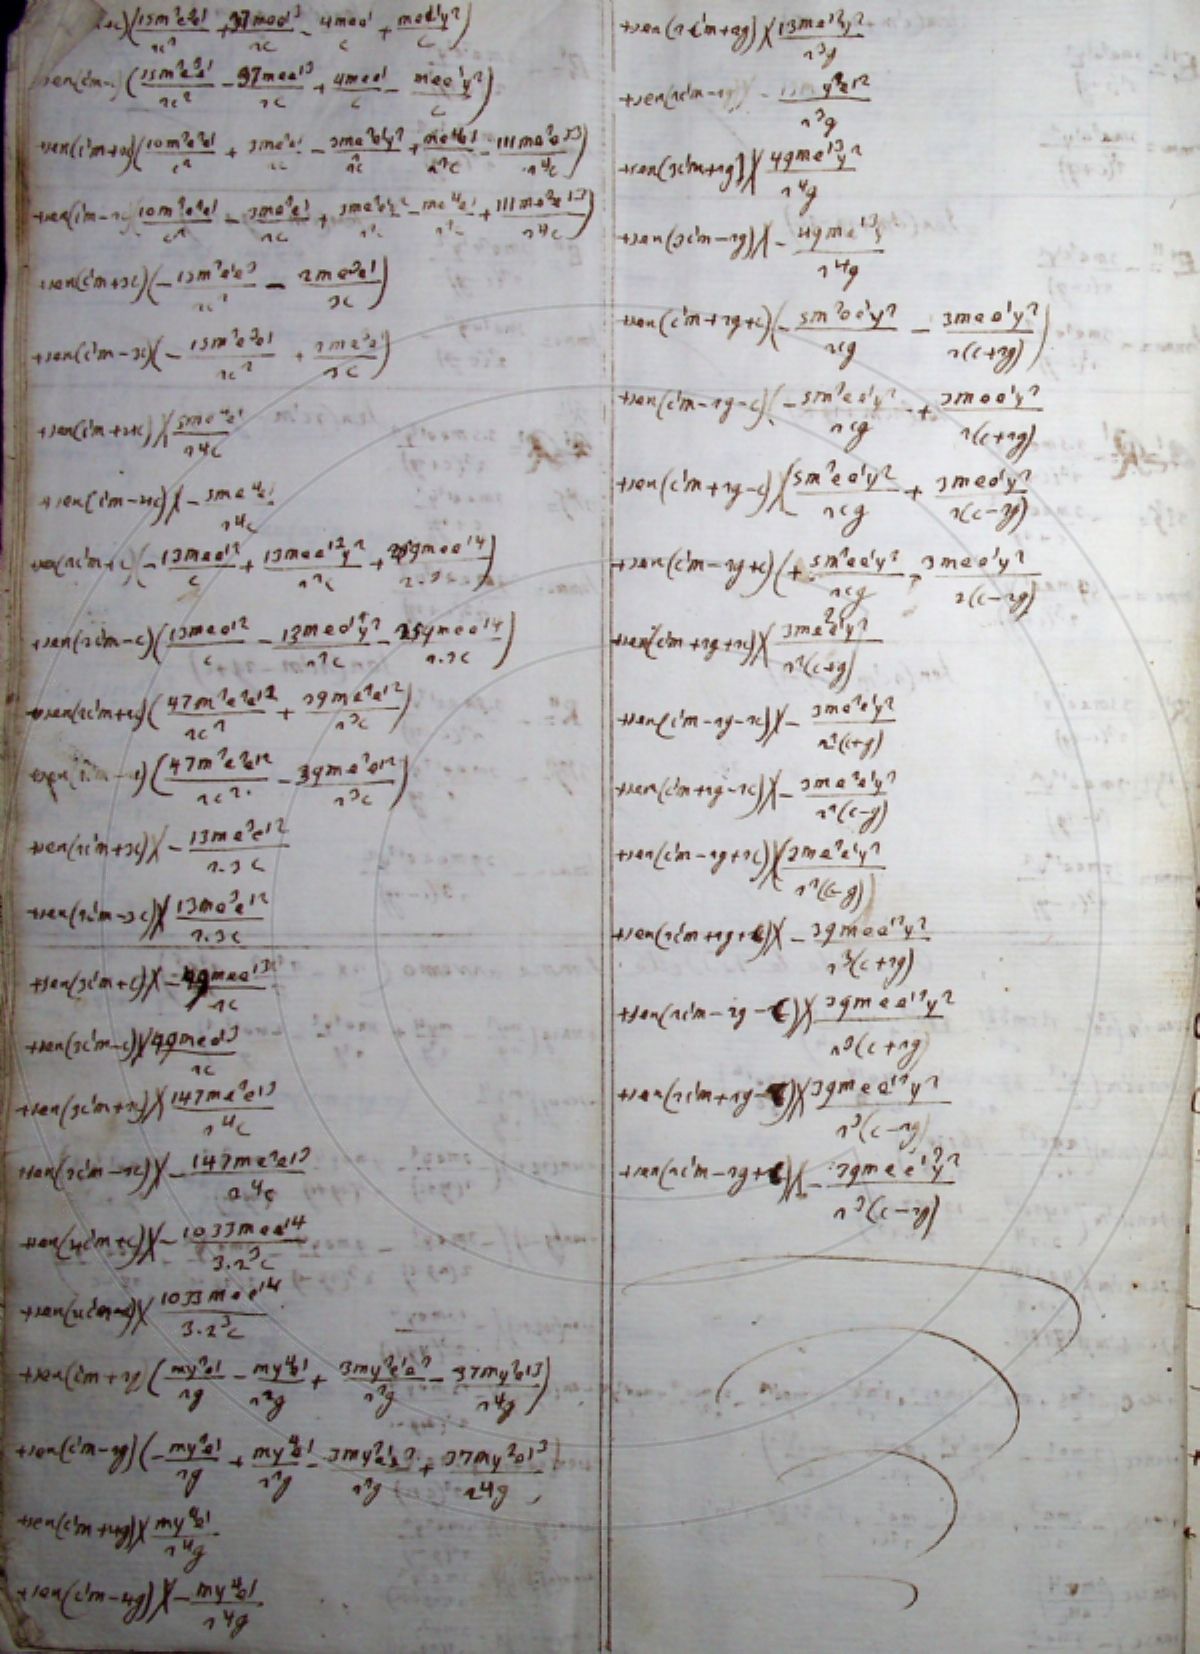 +c)(15m²e²e'/2c² + 37mee'³/2c - 4mee'/c + mee'y²/c)
sen(c'm-c)(15m²e²e'/2c² - 37mee'³/2c + 4mee'/c - mee'y²/c)
+sen(c'm+2c)(10m²e²e'/c² + 3me²e'/2c - 3me²e'y²/2²c + me⁴e'/2²c - 111me²e'³/2⁴c)
+sen(c'm-2c)(10m²e²e'/c² - 3me²e'/2c + 3me²e'y²/2²c - me⁴e'/2²c + 111me²e'³/2⁴c)
+sen(c'm+3c)(-15m²e³e'/2c² - 2me³e'/3c)
+sen(c'm-3c)(-15m²e³e'/2c² + 2me³e'/3c)
+sen(c'm+4c)(5me⁴e'/2⁴c
+sen(c'm-4c)(-5me⁴e'/2⁴c
+sen(2c'm+c)(-13mee'²/c + 13mee'²y²/2²c + 259mee'⁴/2.3c)
+sen(2c'm-c)(13mee'²/c - 13mee'²y²/2²c - 259mee'⁴/2.3c)
+sen(2c'm+2c)(47m²e²e'²/2c² + 39me²e'²/2³c)
(47m²e²e'²/2c² - 39me²e'²/2³c)
+sen(2c'm+3c)(-13me³e'²/2.3c
+sen(2c'm-3c)(13me³e'²/2.3c
+sen(3c'm+c)(-49mee'³/2c
+sen(3c'm-c)(49mee'³/2c
+sen(3c'm+2c)(147me²e'³/2⁴c
+sen(3c'm-2c)(-147me²e'³/2⁴c
+sen(4c'm+c)(-1033mee'⁴/3.2³c
+sen(4c'm-c)(1033mee'⁴/3.2³c
+sen(c'm+2g)(my²e'/2g - my⁴e'/2²g + 3my²e'e²/2²g - 37my²e'³/2⁴g)
+sen(c'm-2g)(-my²e'/2g + my⁴e'/2²g - 3my²e'e²/2²g + 37my²e'³/2⁴g
+sen(c'm+4g)(my⁴e'/2⁴g
+sen(c'm-4g)(-my⁴e'/2⁴g
+sen(2c'm+2g)(13me'²y²/2³g
+sen(2c'm-2g)(-13my²e'²/2³g
+sen(3c'm+2g)(49me'³y²/2⁴g
+sen(3c'm-2g)(-49me'³/2⁴g
+sen(c'm+2g+c)(-5m²ee'y²/2cg - 3mee'y²/2(c+2g))
+sen(c'm-2g-c)(-5m²ee'y²/2cg + 3mee'y²/2(c+2g)
+sen(c'm+2g-c)(5m²ee'y²/2cg + 3mee'y²/2(c-2g)
+sen(c'm-2g+c)(+5m²ee'y²/2cg - 3mee'y²/2(c-2g)
+sen(c'm+2g+2c)(3me²e'y²/2²(c+g)
+sen(c'm-2g-2c)(-3me²e'y²/2²(c+g)
+sen(c'm+2g-2c)(-3me²e'y²/2²(c-g)
+sen(c'm-2g+2c)(3me²e'y²/2²(c-g)
+sen(2c'm+2g+c)(-39mee'²y²/2³(c+2g)
+sen(2c'm-2g-c)(39mee'²y²/2³(c+2g)
+sen(2c'm+2g-c)(39mee'²y²/2³(c-2g)
+sen(2c'm-2g+c)(-39mee'²y²/2³(c-2g)